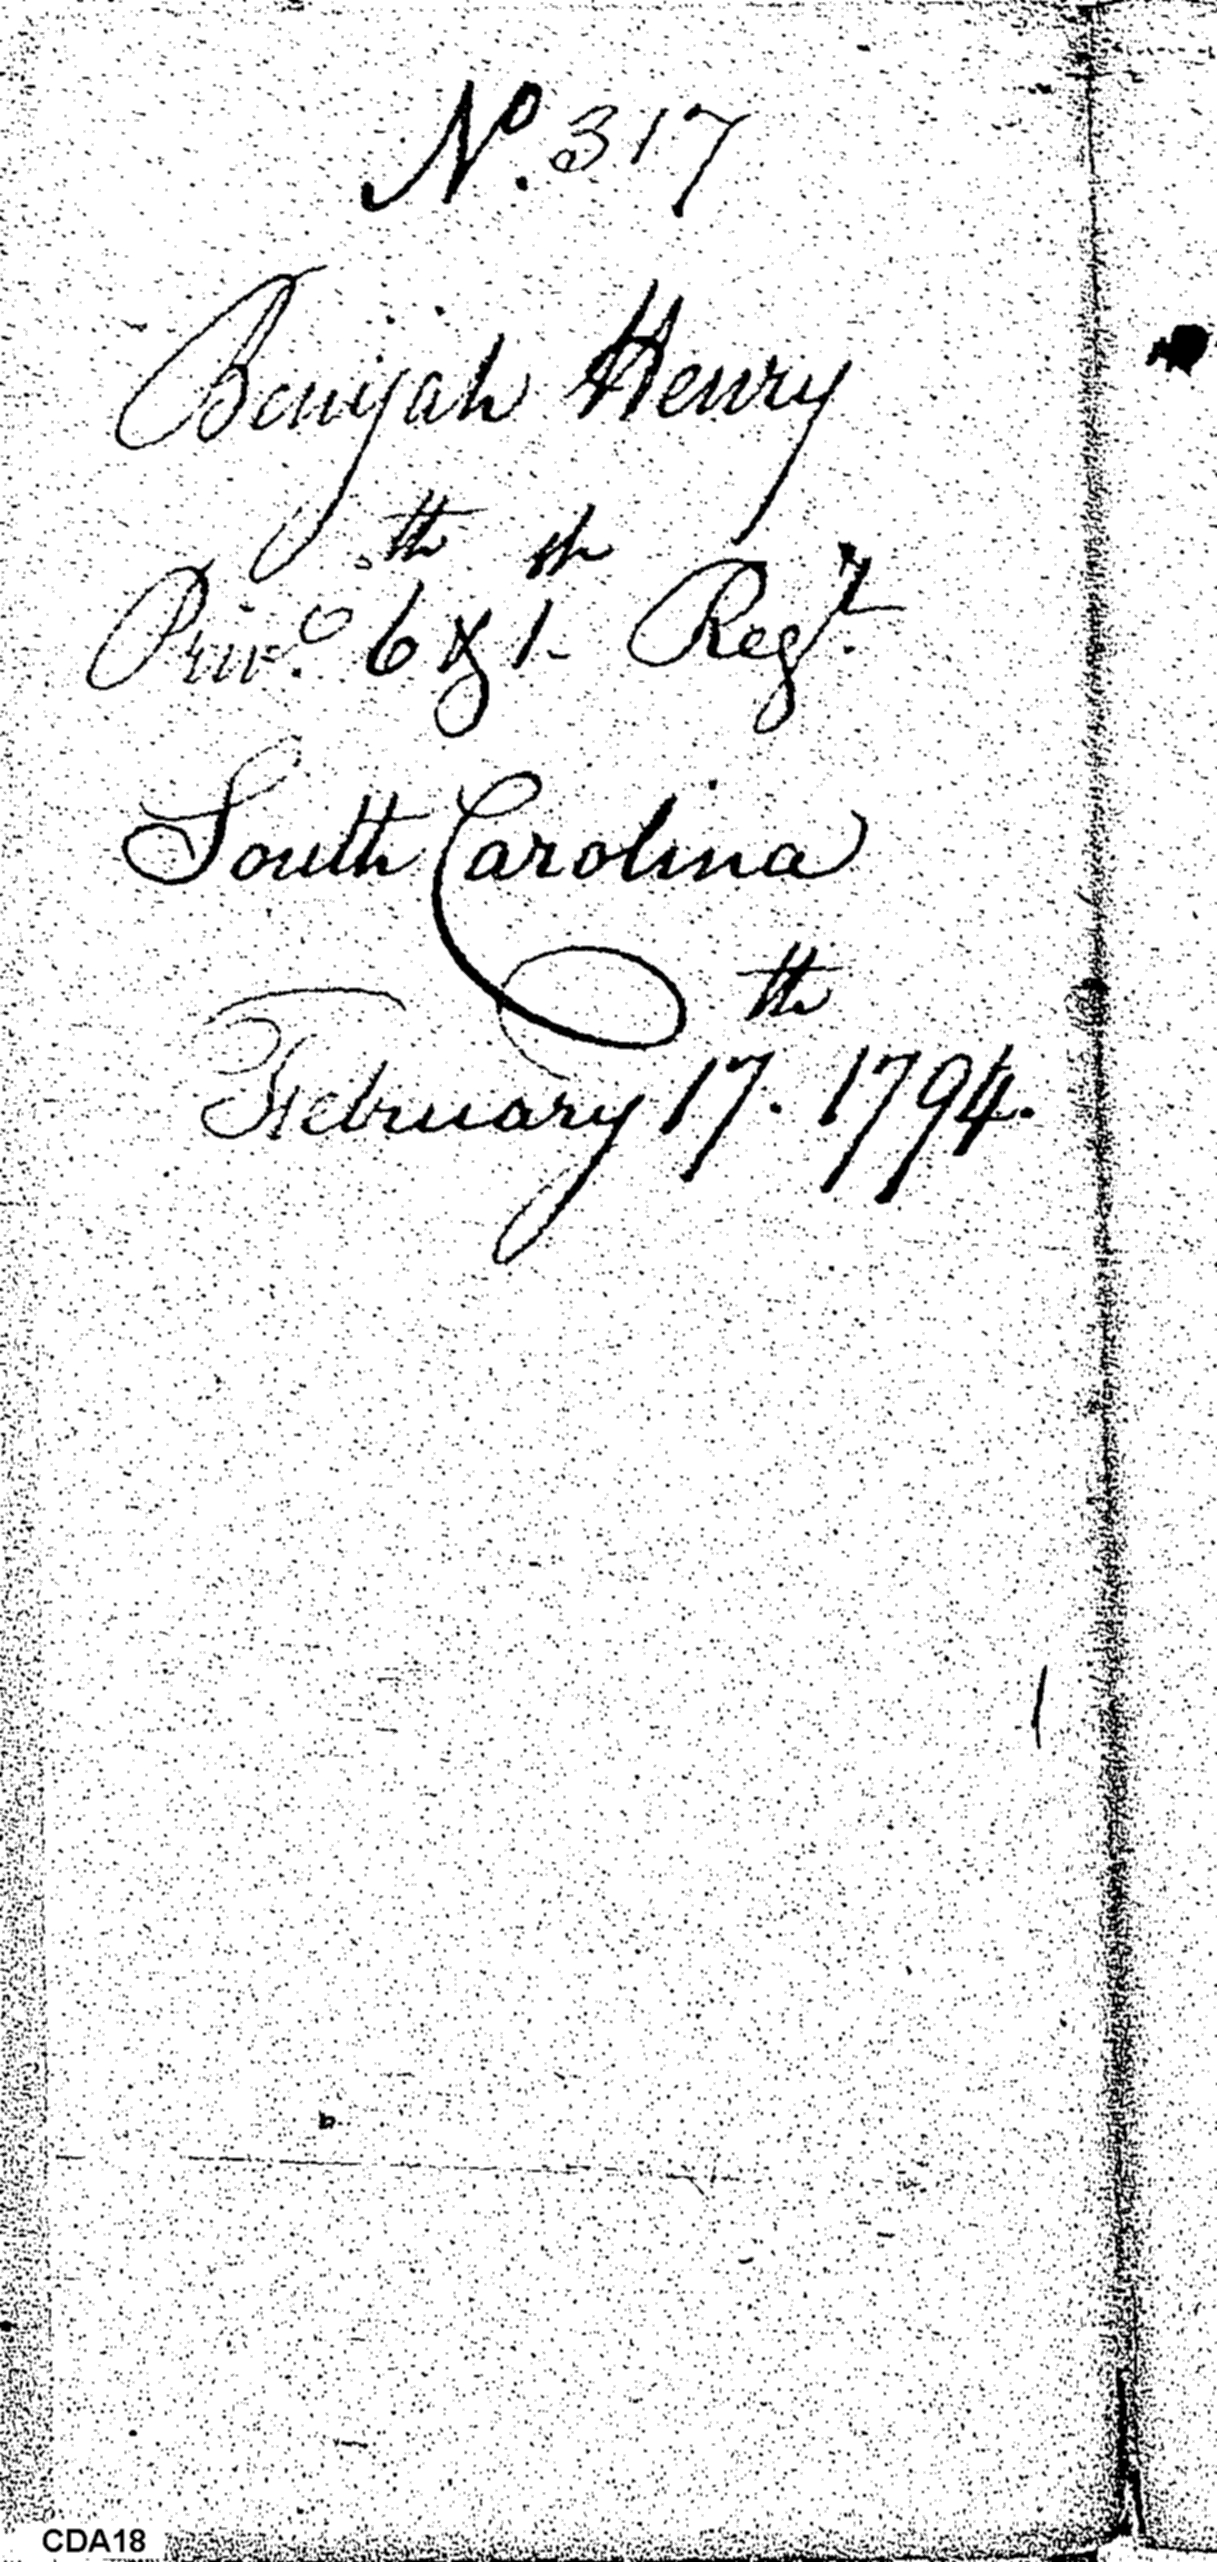 No. 317
Benijah Henry
Privo. 6th & 1st Regt.
South Carolina
February 17th. 1794.
CDA18